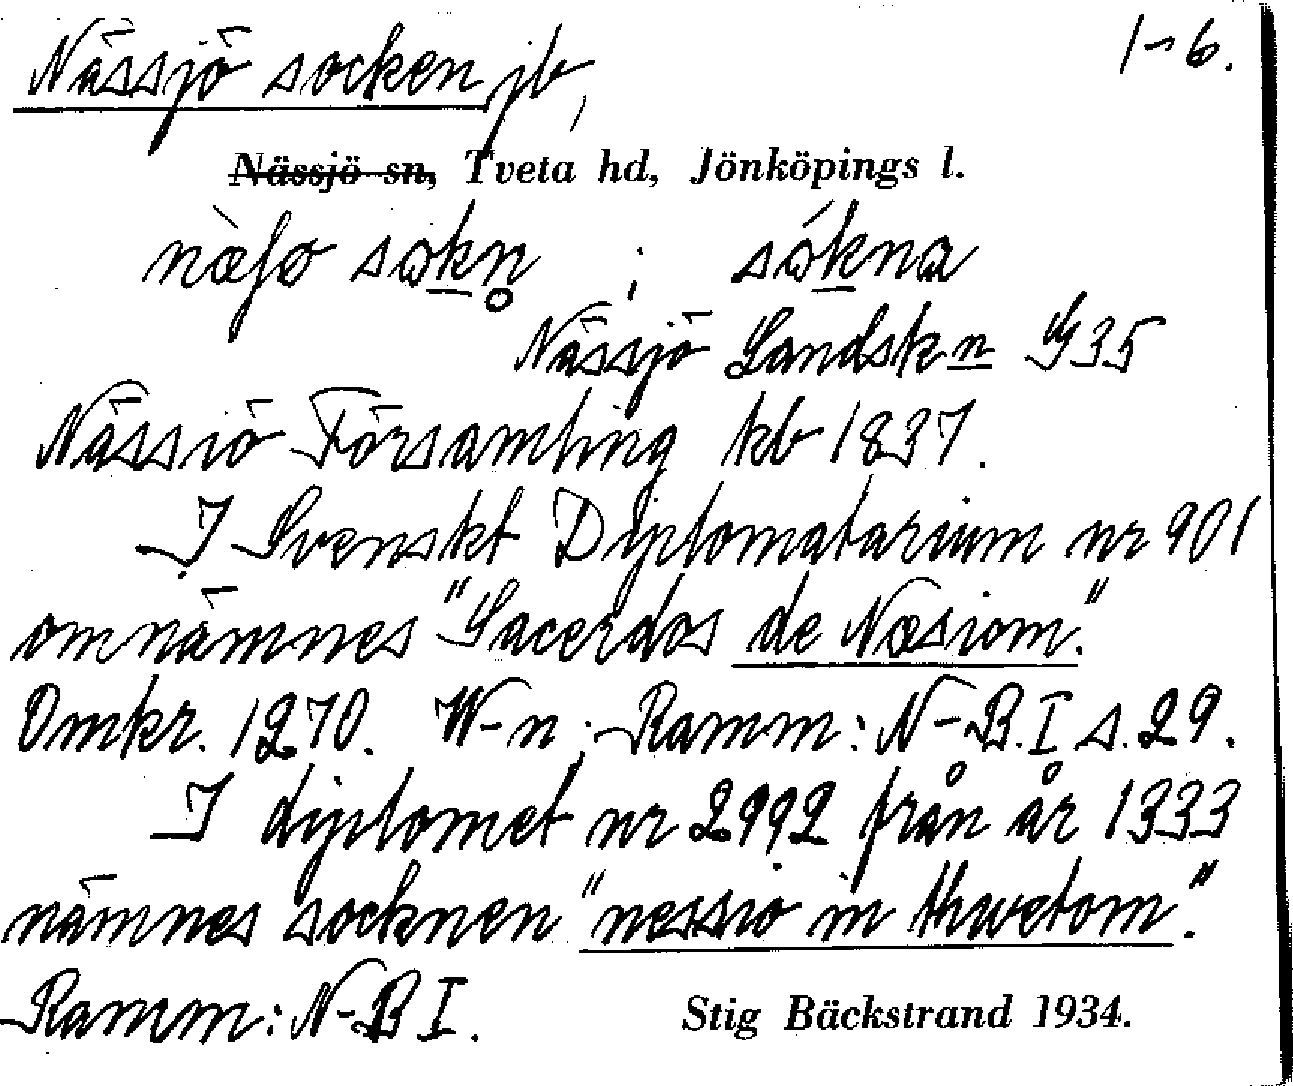 Nässjö socken jb, 1-6.
Nässjö sn, Tveta hd, Jönköpings l.
næ̀ʃo sokn̥ ; sókna
Nässjö Landskn G 35
Nässiö Församling kb 1837.
I Svenskt Diplomatarium nr 901
omnämnes "Sacerdos de Næsiom."
Omkr. 1270. W-n; Ramm: N-B. I s. 29.
I diplomet nr 2992 från år 1333
nämnes socknen "nessio in thwetom".
Ramm: N-B I.
Stig Bäckstrand 1934.